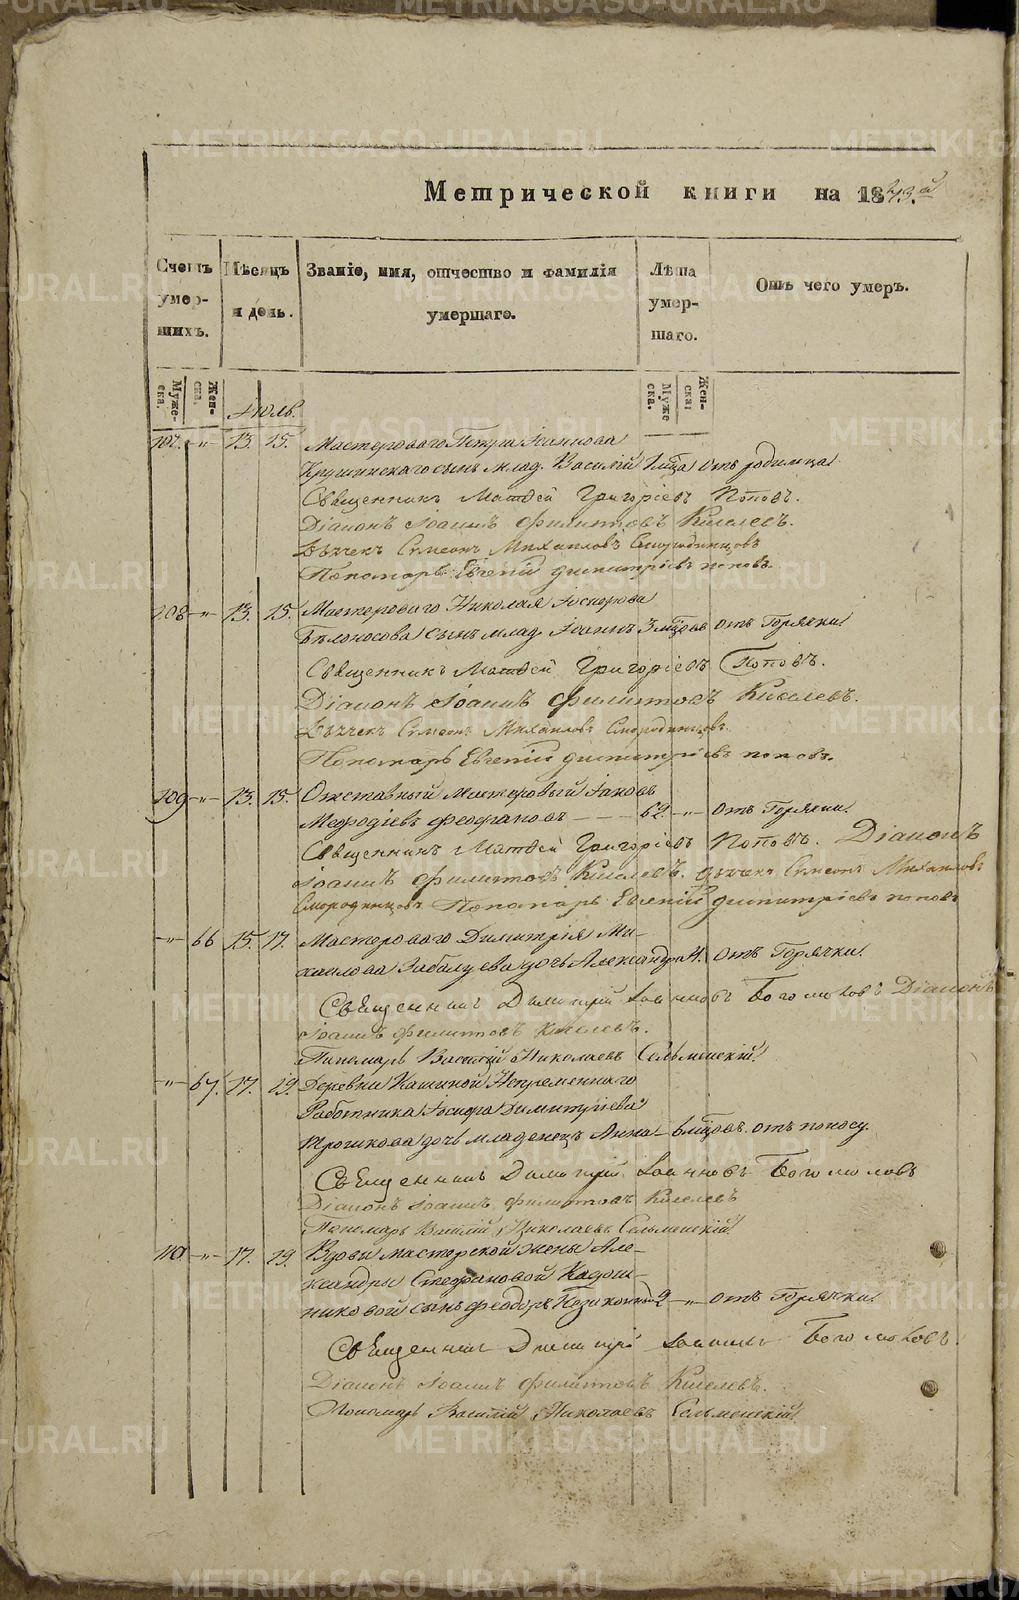 Метрической книги на 1843.й
Счетъ Мѣсяцъ Званіе, имя, отчество и фамилія Лѣта Отъ чего умеръ.
умер- и день. умершаго. умер-
шихъ. шаго.
Муже- Жен- Муже Жен-
ска. ска. ска. ска:
Іюль.
107. -„- 13. 15. Мастероваго Петра Іоаннова
Крушинскаго сынъ млад. Василій 1 мца отъ родимца
Священникъ Матѳей Григоріевъ Поповъ.
Діаконъ Іоаннъ Филиповъ Киселевъ.
Дьячекъ Симеонъ Михаиловъ Смородинцовъ
Пономарь Евгеній Димитріевъ Поповъ
108 -„- 13. 15. Мастероваго Николая
Бѣлоносова сынъ млад. Іоаннъ 3 мцовъ отъ Горячки
Священникъ Матѳей Григоріевъ Поповъ.
Діаконъ Іоаннъ Филиповъ Киселевъ.
Дьячекъ Симеонъ Михаиловъ Смородинцовъ
Пономарь Евгеній Димитріевъ Поповъ.
109 -„- 13. 15. Отставный Мастеровый Іаковъ
Меѳодіевъ Феофановъ 62. -„- отъ Горячки
Священникъ Матѳей Григоріевъ Поповъ. Діаконъ
Іоаннъ Филиповъ Киселевъ. Дьячекъ Симеонъ Михаиловъ
Смородинцовъ Пономарь Евгеній Димитріевъ Поповъ
-„- 66 15. 17. Мастероваго Димитрія Ми-
хаилова Забалуева дочь Александра 4. отъ Горячки.
Священникъ Димитрій Іоанновъ Богомоловъ Діаконъ
Іоаннъ Филиповъ Киселевъ.
Пономарь Василій Николаевъ Сельменскій
-„- 67. 17. 19. Деревни Кашиной Непременнаго
Работника Іосифа Димитріева
дочь младенецъ Анна 6 мцовъ. отъ поносу
Священникъ Димитрій Іоанновъ Богомоловъ
Діаконъ Іоаннъ Филиповъ Киселевъ
Пономарь Василій Николаевъ Сельменскій
110 -„- 17. 19. Вдовы мастерской жены Але-
ксандры Стефановой Кадош-
никовой сынъ Феодоръ 2 -„- отъ Горячки
Священникъ Димитрій Іоанновъ Богомоловъ.
Діаконъ Іоаннъ Филиповъ Киселевъ.
Пономарь Василій Николаевъ Сельменскій
METRIKI.GASO-URAL.RU